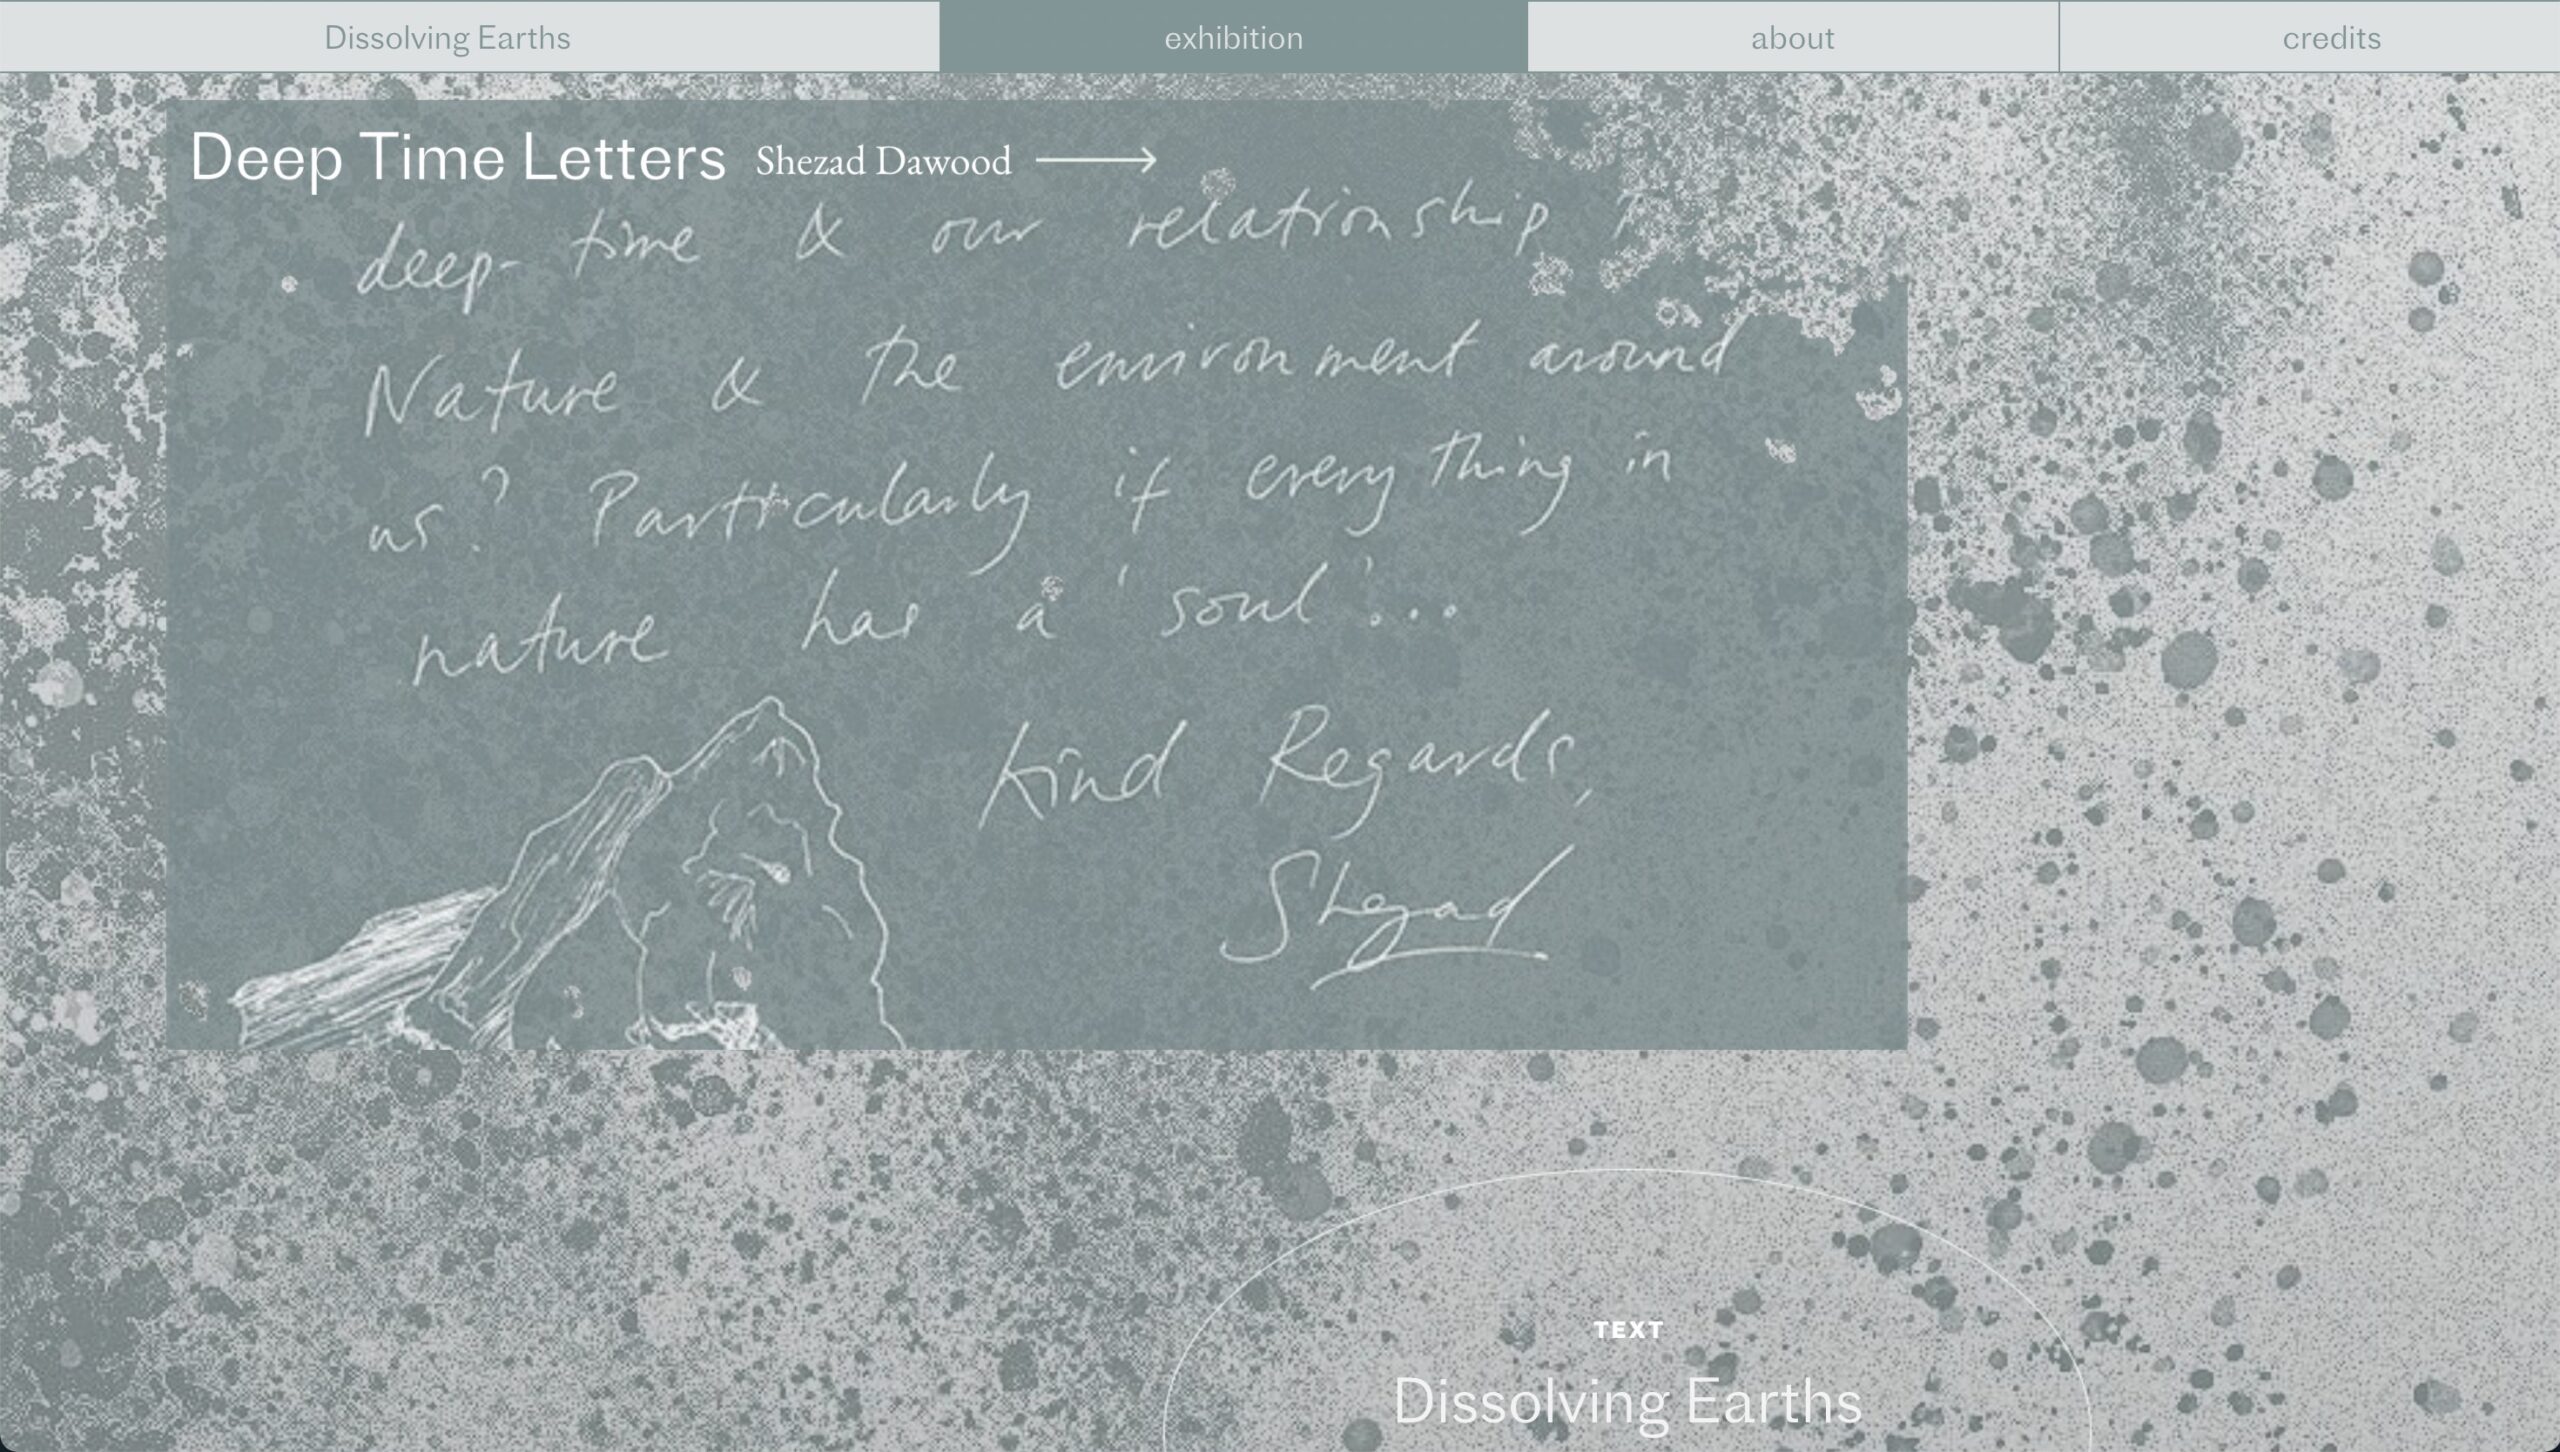 Dissolving Earths
exhibition
about
credits
Deep Time Letters Shezad Dawood
deep-time & our relationship
Nature & the environment around
us? Particularly if everything in
nature has a 'soul'...
Kind Regards,
Shezad
TEXT
Dissolving Earths